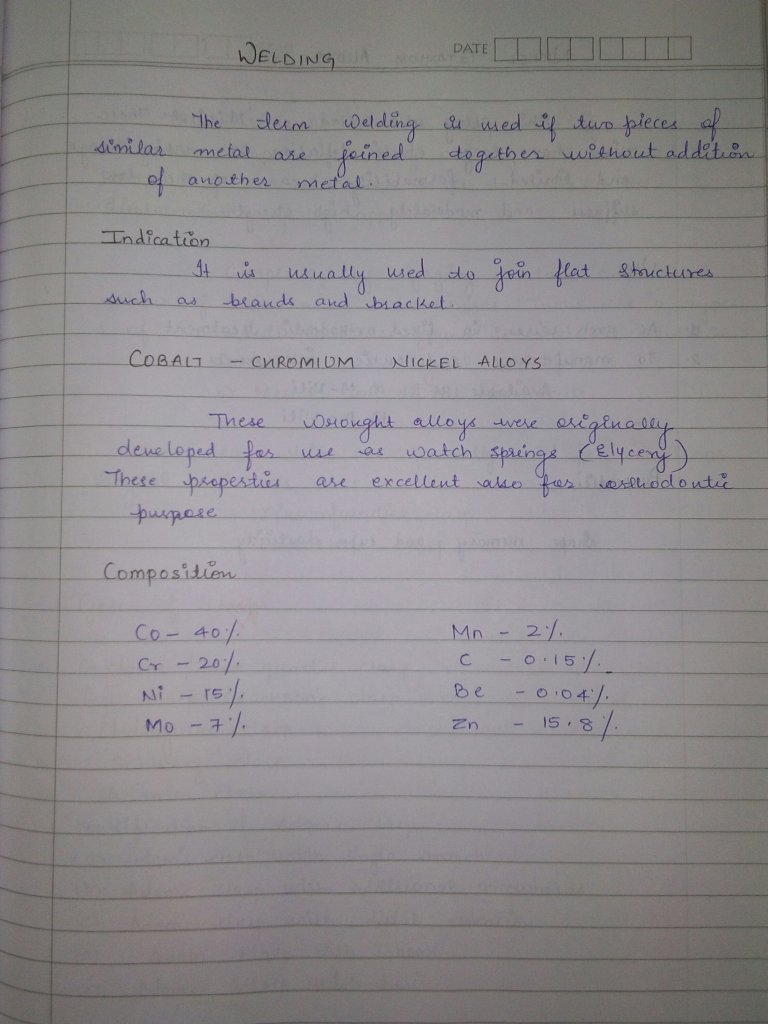 WELDING
DATE
The term welding is used if two pieces of
similar metal are joined together without addition
of another metal.
Indication
It is usually used to join flat structures
such as brands and bracket.
COBALT - CHROMIUM NICKEL ALLOYS
These wrought alloys were originally
developed for use as watch springs (Elycery)
These properties are excellent also for orthodontic
purpose
Composition
Co - 40%.
Mn - 2%.
Cr - 20%.
C - 0.15%.
Ni - 15%.
Be - 0.04%.
Mo - 7%.
Zn - 15.8%.